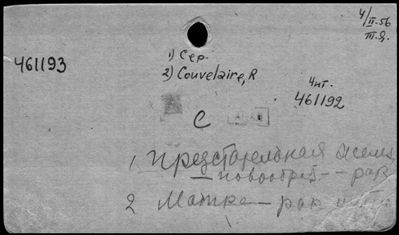 4/II-56
т.д.
1) Сер.
461193
2) Couvelaire, R
4 чт.
461192
С
1 Предстательная желез
новообраз -- рак
2 Матка — рак